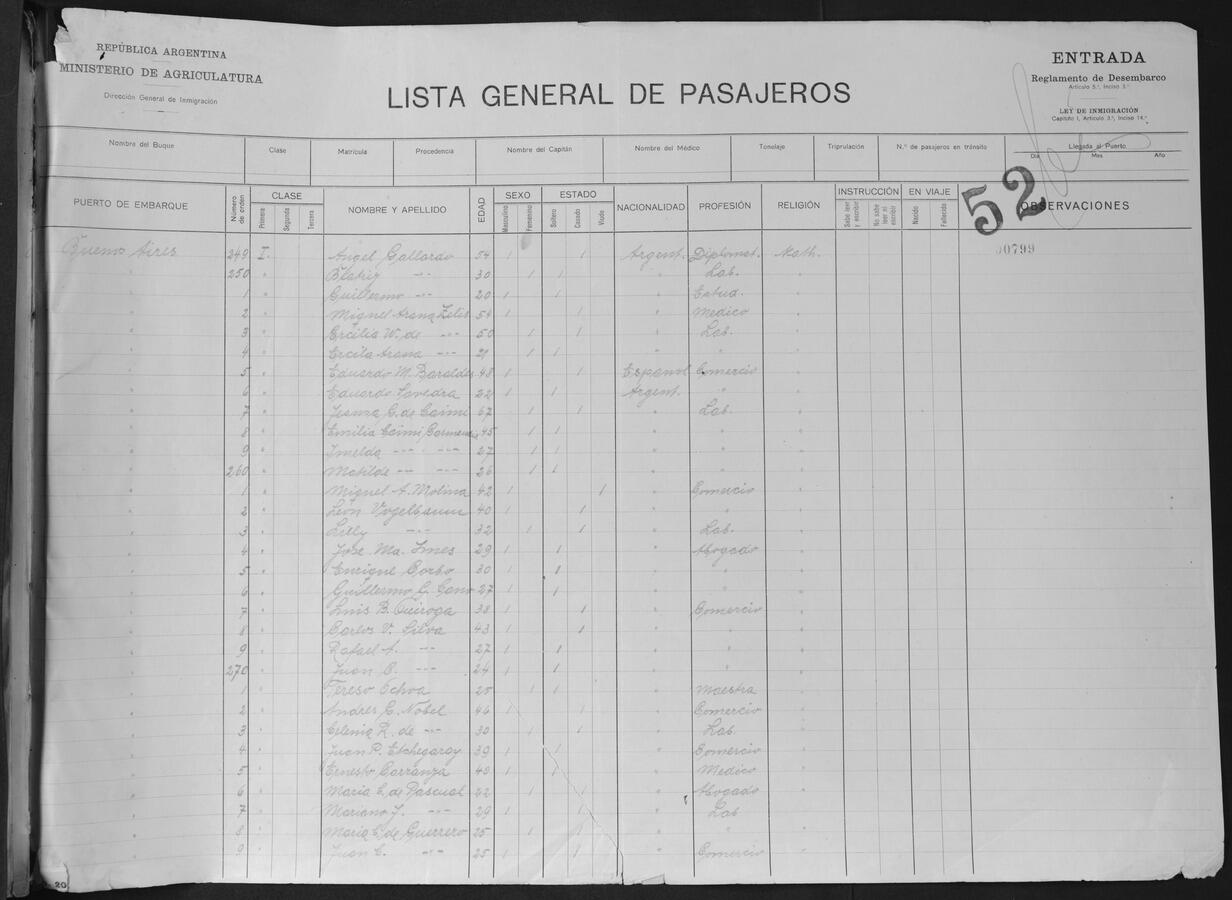 REPÚBLICA ARGENTINA
MINISTERIO DE AGRICULTURA
Dirección General de Inmigración
LISTA GENERAL DE PASAJEROS
ENTRADA
Reglamento de Desembarco
Artículo 5°, Inciso 3°
LEY DE INMIGRACIÓN
Capítulo I, Artículo 3°, Inciso 14°
Nombre del Buque Clase Matrícula Procedencia Nombre del Capitán Nombre del Médico Tonelaje Tripulación N.° de pasajeros en tránsito Llegada al Puerto
Día Mes Año
52
PUERTO DE EMBARQUE Número de orden CLASE Primera Segunda Tercera NOMBRE Y APELLIDO EDAD SEXO Masculino Femenino ESTADO Soltero Casado Viudo NACIONALIDAD PROFESIÓN RELIGIÓN INSTRUCCIÓN Sabe leer y escribir No sabe leer ni escribir EN VIAJE Nacido Fallecido OBSERVACIONES
Buenos Aires 249 I. Angel Gallardo 54 1 1 Argent. Diplomat. Kath. 00799
250 " -"- 30 1 1 " Lab. "
1 " Guillermo -"- 20 1 1 " Estud. "
2 " Miguel Arana 54 1 1 " Medico "
3 " Ercilia W. de -"- 50 1 1 " Lab. "
4 " Ercila Arana -"- 21 1 1 " " "
5 " Eduardo M. Baralde 48 1 1 Español Comercio "
6 " Eduardo Savedra 22 1 1 Argent. " "
7 " Juana C. de Caimi 67 1 1 " Lab. "
8 " Emilia Caimi 45 1 1 " " "
9 " Imelda -"- -"- 27 1 1 " " "
260 " Matilde -"- -"- 26 1 1 " " "
1 " Miguel A. Molina 42 1 1 " Comercio "
2 " León Vogelbaum 40 1 1 " " "
3 " Lilly -"- 32 1 1 " Lab. "
4 " Jose Ma. Imes 29 1 1 " Abogado "
5 " Enrique Corbo 30 1 1 " " "
6 " Guillermo G. Cano 27 1 1 " " "
7 " Luis B. Quiroga 38 1 1 " Comercio "
8 " Carlos V. Silva 43 1 1 " " "
9 " Rafael A. -"- 27 1 1 " " "
270 " Juan O. -"- 24 1 1 " " "
1 " Tereso Ochoa 25 1 1 " Maestra "
2 " Andres C. Nobel 46 1 1 " Comercio "
3 " Celenia R. de -"- 30 1 1 " Lab. "
4 " Juan P. Etchegaray 39 1 1 " Comercio "
5 " Ernesto Carranza 40 1 1 " Medico "
6 " Maria E. de Pascual 22 1 1 " Abogado "
7 " Mariano J. -"- 29 1 1 " Lab "
8 " Maria C. de Guerrero 25 1 1 " " "
9 " Juan C. -"- 25 1 1 " Comercio "
20